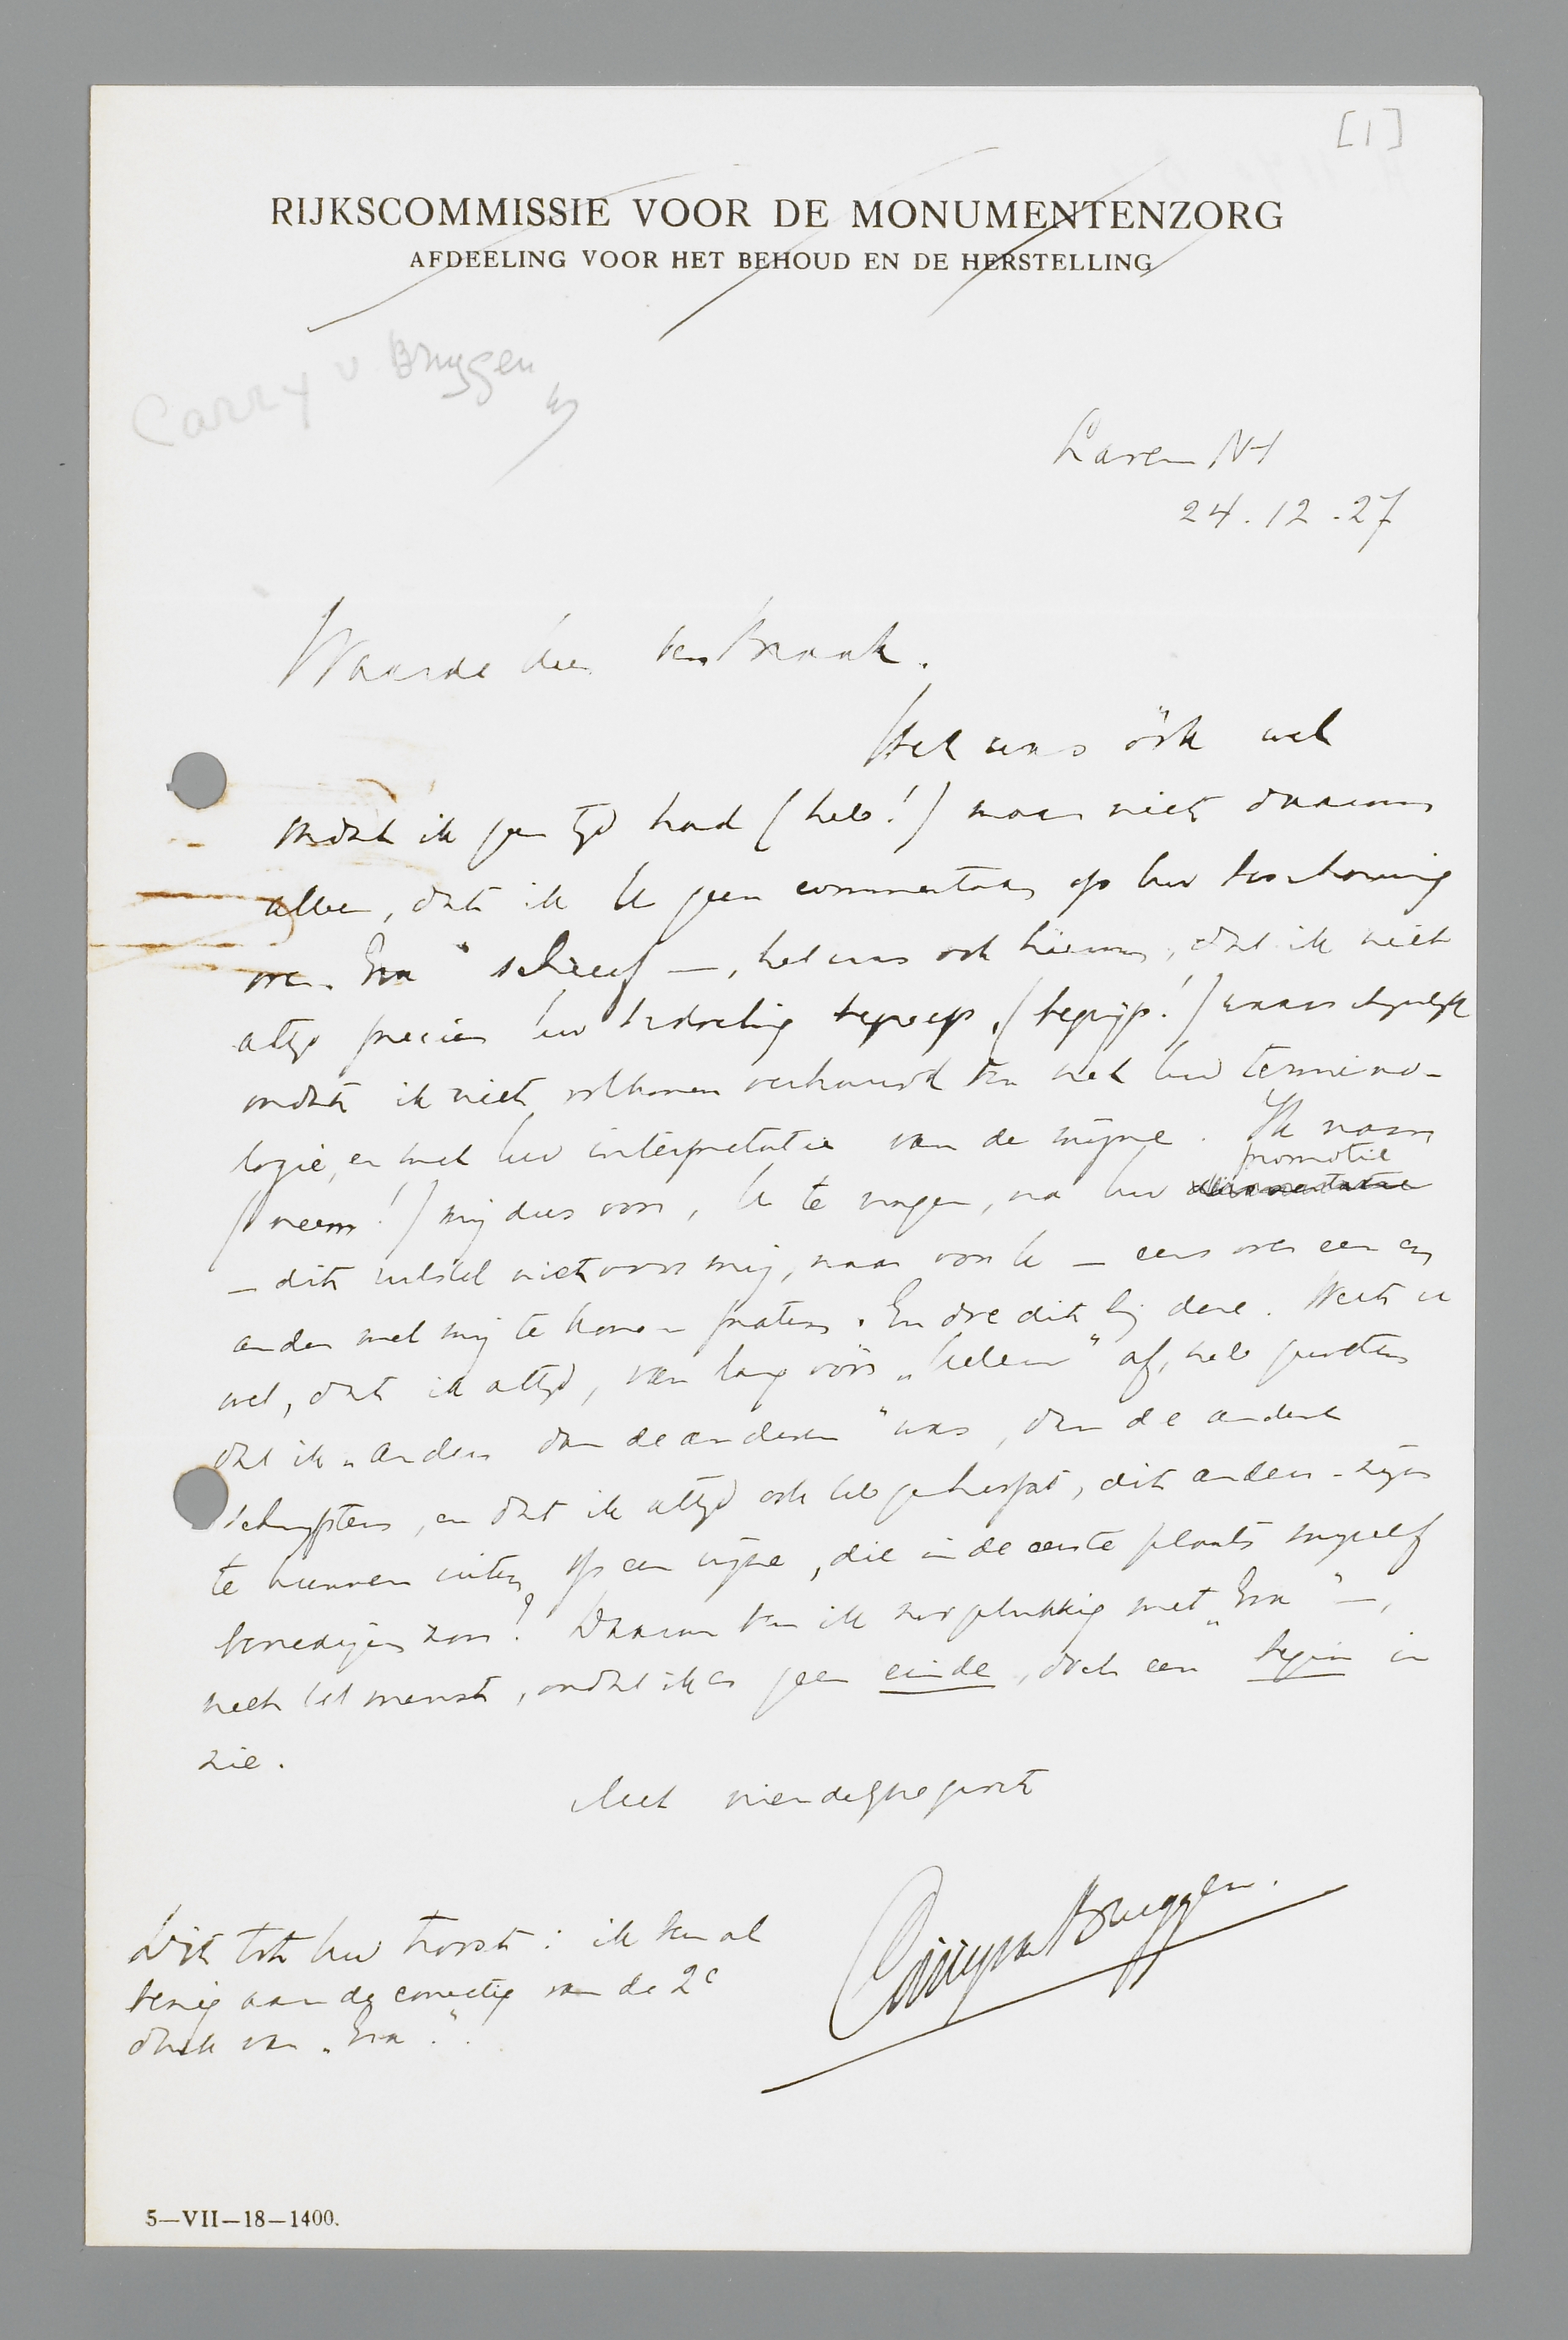 [1]
RIJKSCOMMISSIE VOOR DE MONUMENTENZORG
AFDEELING VOOR HET BEHOUD EN DE HERSTELLING
Carry v Bruggen
Laren NH
24.12.27
Waarde heer ter Braak.
Het was óók wel
omdat ik geen tijd had (heb!) maar niet daarom
alleen, dat ik U geen commentaar op Uw beschouwing
over "Eva" schreef —, het was ook hierom, dat ik niet
altijd precies Uw bedoeling begreep, (begrijp!) waarschijnlijk
omdat ik niet volkomen vertrouwd ben met Uw termino-
logie, en met Uw interpretatie van de mijne. Ik nam
(neem!) mij dus voor, U te vragen, na Uw promotie
— dit uitstel niet voor mij, maar voor U — eens over een en
ander met mij te komen praten. En doe dit bij deze. Weet U
wel, dat ik altijd, van lang vóór "Heleen" af, heb geweten
dat ik "anders dan de anderen" was, dan de andere
schrijfsters, en dat ik altijd ook heb gehoopt, dit anders-zijn
te kunnen uiten op een wijze, die in de eerste plaats mijzelf
bevredigen zou? Daarom ben ik zoo gelukkig met "Eva" —,
niet het minst, omdat ik er geen einde, doch een begin in
zie.
Met vriendelijke groet
Carry van Bruggen.
Dit tot Uw troost: ik ben al
bezig aan de correctie van de 2e
druk van "Eva".
5—VII—18—1400.